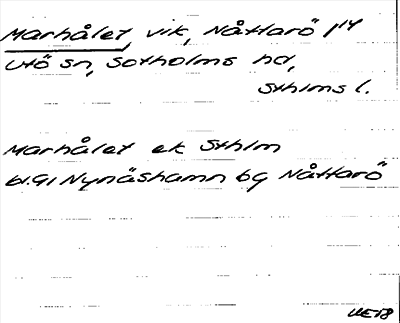 Marhålet, vik, Nåttarö
Utö sn, Sotholms hd,
Sthlms l.
Marhålet ek Sthlm
bl. 91 Nynäshamn bg Nåttarö